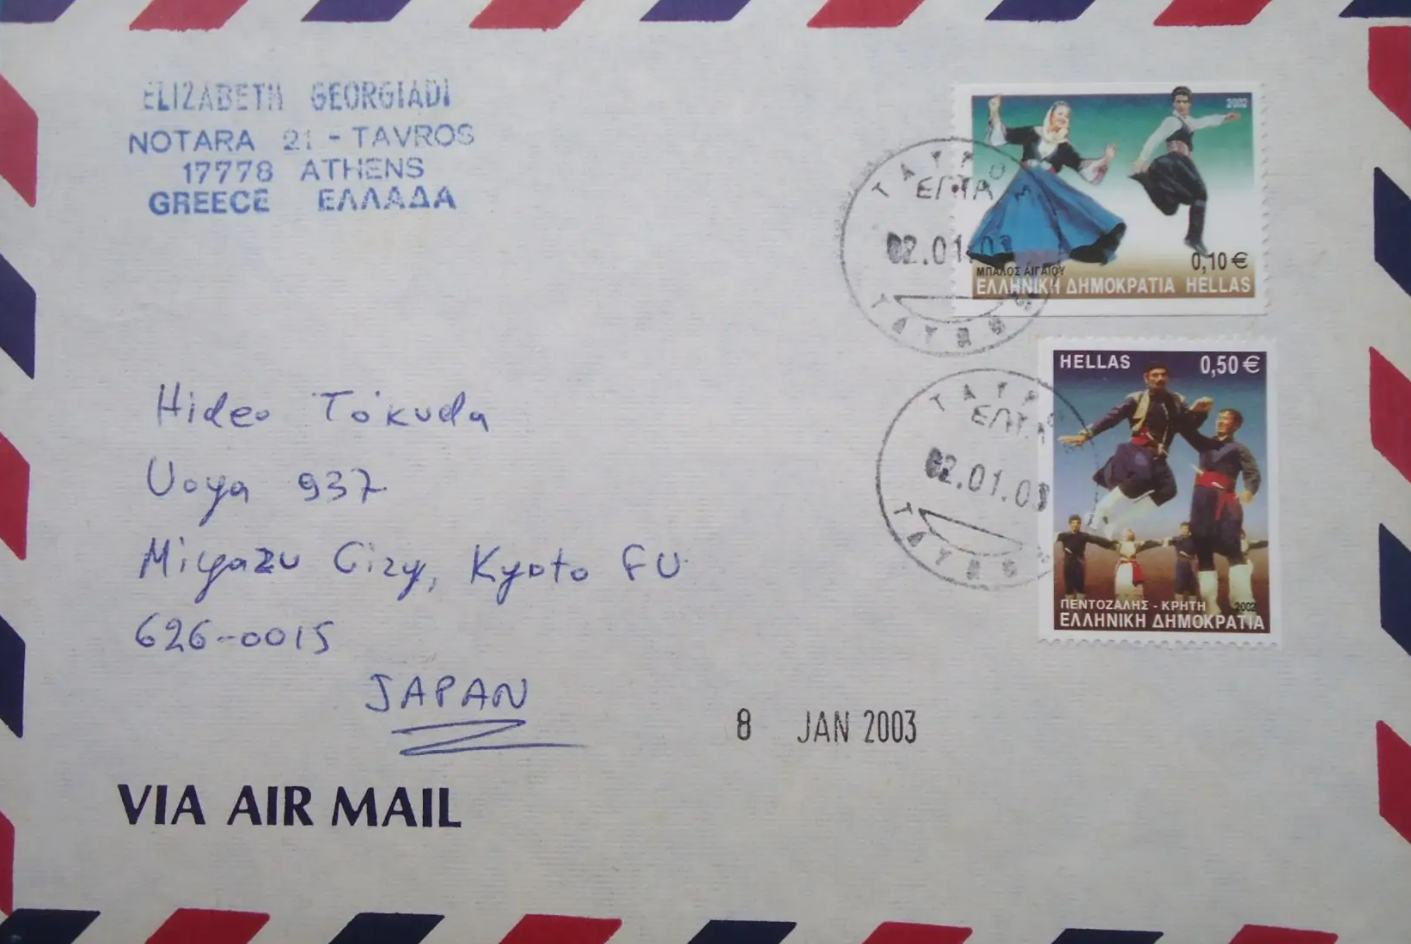 ELIZABETH GEORGIADI
NOTARA 21 - TAVROS
17778 ATHENS
GREECE ΕΛΛΑΔΑ
2002
0,10 €
ΜΠΑΛΟΣ ΑΙΓΑΙΟΥ
ΕΛΛΗΝΙΚΗ ΔΗΜΟΚΡΑΤΙΑ HELLAS
ΕΛΤΑ
02.01.03
HELLAS 0,50 €
ΠΕΝΤΟΖΑΛΗΣ - ΚΡΗΤΗ 2002
ΕΛΛΗΝΙΚΗ ΔΗΜΟΚΡΑΤΙΑ
ΕΛΤΑ
02.01.03
Hideo Tokuda
Uoya 937
Miyazu City, Kyoto FU
626-0015
JAPAN
8 JAN 2003
VIA AIR MAIL